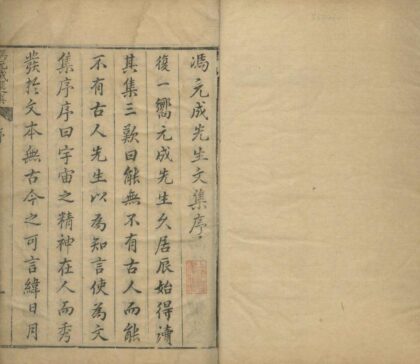 馮元成先生文集序
復一嚮元成先生久居辰始得讀
其集三歎曰能無不有古人而能
不有古人先生以為知言使為文
集序序曰宇宙之精神在人而秀
發於文本無古今之可言緯日月
序